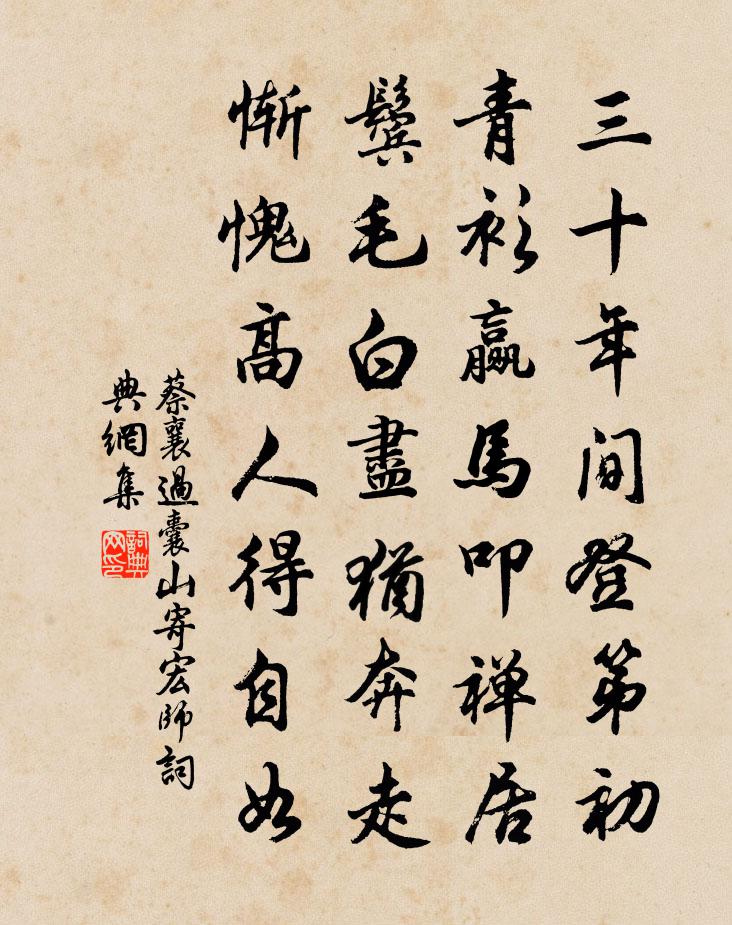 三十年間登第初
青衫羸馬叩禅居
鬓毛白盡猶奔走
慚愧高人得自如
蔡襄過囊山寄宏師詞
典網集
詞典
网印